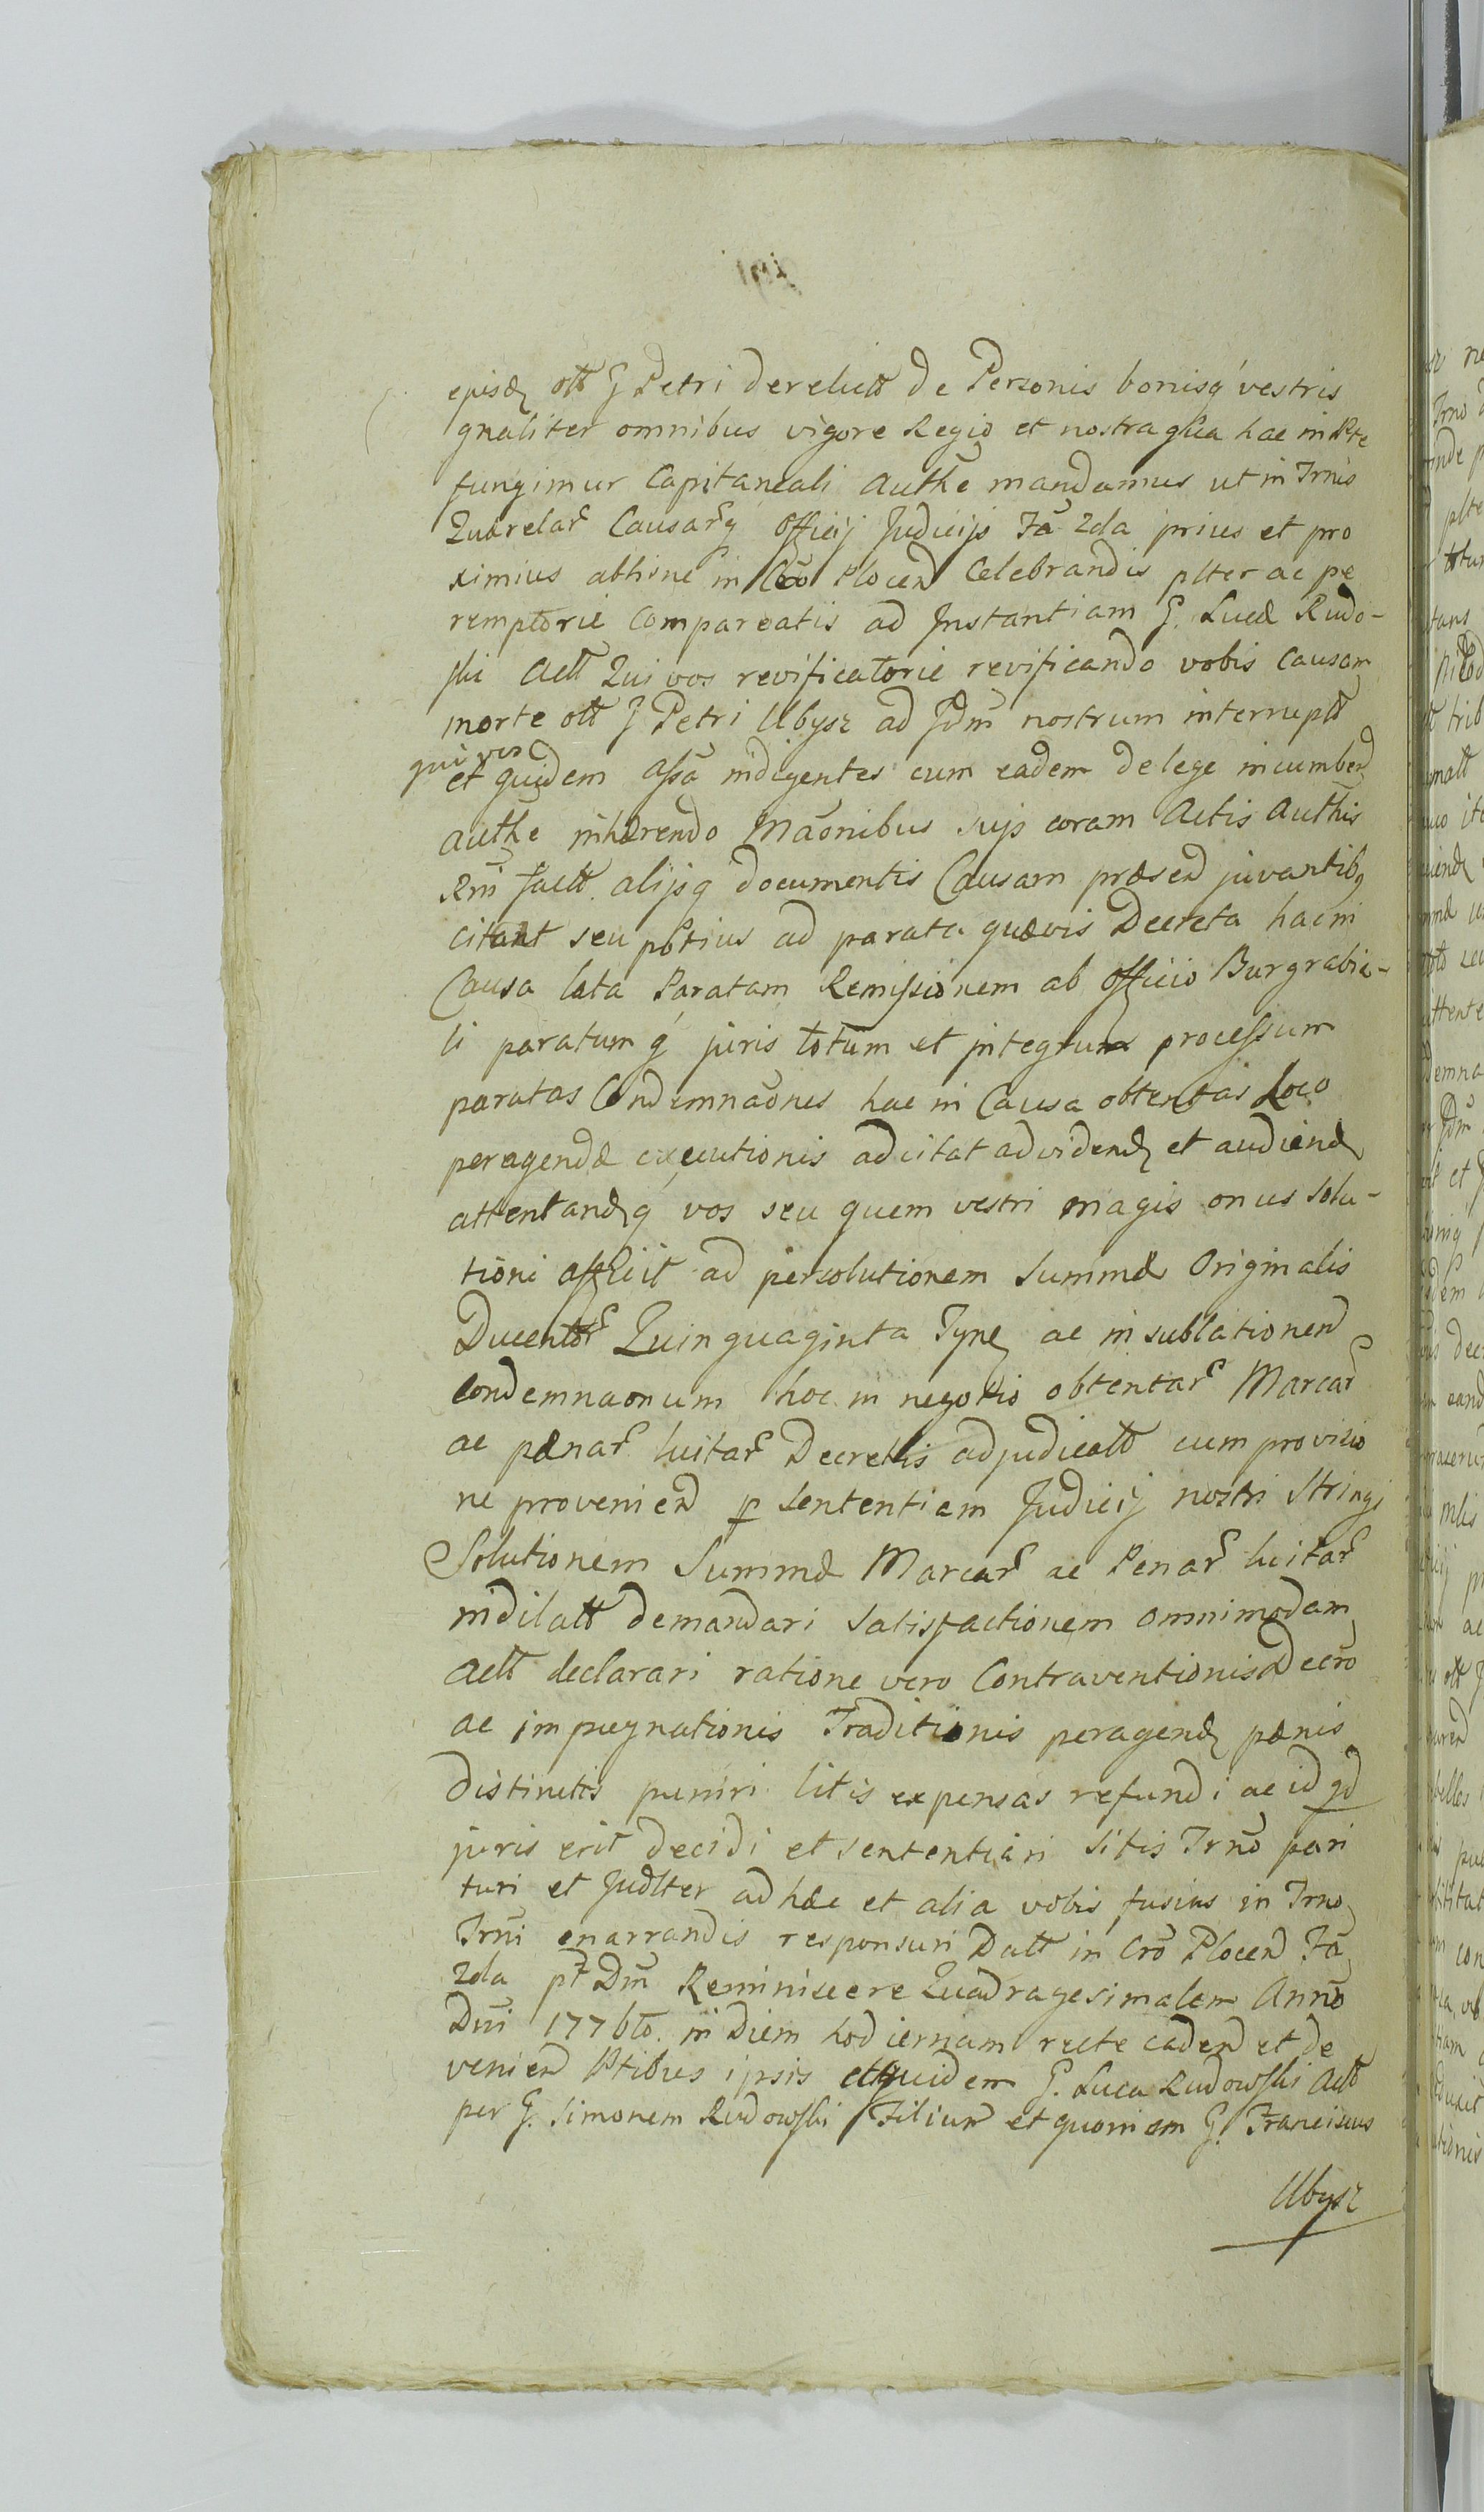 ejusd olt G Petri derelict de Personis bonisq vestris
gnaliter omnibus vigore Regio et nostra qua hac in Pte
fungimur Capitaneali Authe mandamus ut in Trnis
Querelar Causarq Officij Judicijs Fa 2da prius et pro
ximius abhinc in Cro Plocen Celebrandis plter ac pe
remptorie Compareatis ad Instantiam G. Lucæ Rudo-
ski Act Qui vos revificatorie revificando vobis Causam
morte olt G Petri Ubysz ad Jdm nostrum interrupt
qui vos
et quidem assa indigentes cum eadem de lege incumben
authe inhærendo Maonibus suis coram Actis Authis
Rni fact alijsq documentis Causam præsen juvantibq
citant seu potius ad parata quævis Decreta hac in
Causa lata Paratam Remissionem ab Officio Burgrabia-
li paratum q juris totum et integrum processum
paratas Condemnaones hac in Causa obtentas Loco
peragendæ executionis adcitat ad vidend et audiend
attentandq vos seu quem vestri magis onus solu-
tioni afficit ad persolutionem Summæ Originalis
Ducentor Quinquaginta Tynf ac in sublationen
Condemnaonum hoc in negotio obtentar Marcar
ac pænar luitar Decretis adjudicatt cum provisio
ne provenien p sententiam Judicij nostri Stringi
Solutionem Summæ Marcar ac Penar luitar
indilatt demandari Satisfactionem omnimodam
Act declarari ratione vero Contraventionis Decro
ac impugnationis Traditionis peragend pænis
distinctis puniri litis expensas refundi ac id qd
juris erit decidi et sententiari Sitis Trno pari
turi et Judlter ad hæc et alia vobis fusius in Trno
Trni enarrandis responsuri Datt in Cro Plocen Fa
2da pt Dm Reminiscere Quadragesimalem Anno
Dni 1776to in diem hodiernam recte caden et de
venien Ptibus ipsis etquidem G. Luca Rudowski Act
per G. Simonem Rudowski Filium et quoniam G. Franciscus
Ubysz